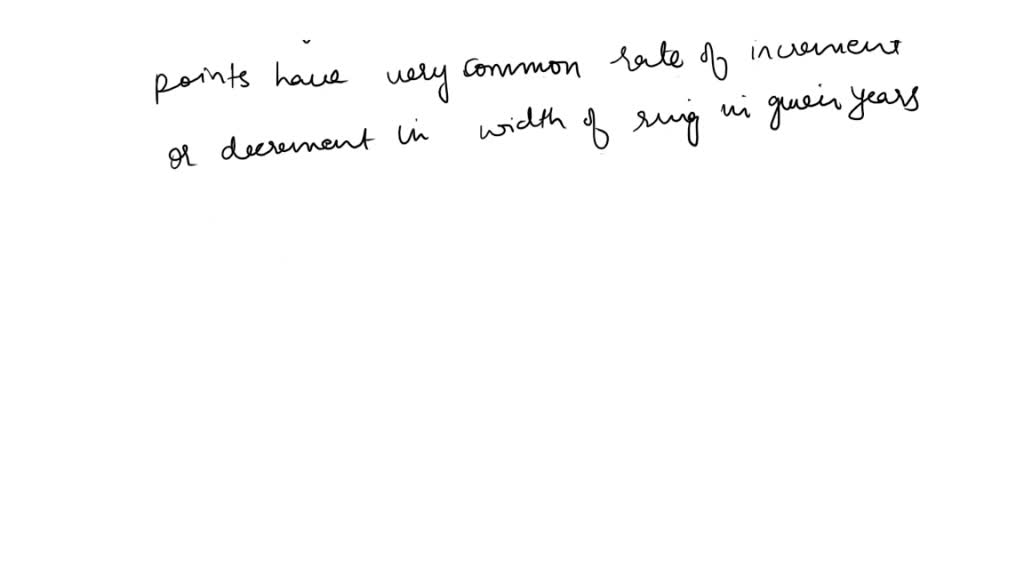 points have very common rate of increment
or decrement in width of ring in given years